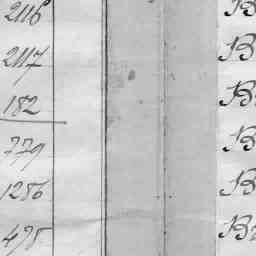 2116 B
2117 B
182 B
779 B
1286 B
478 B